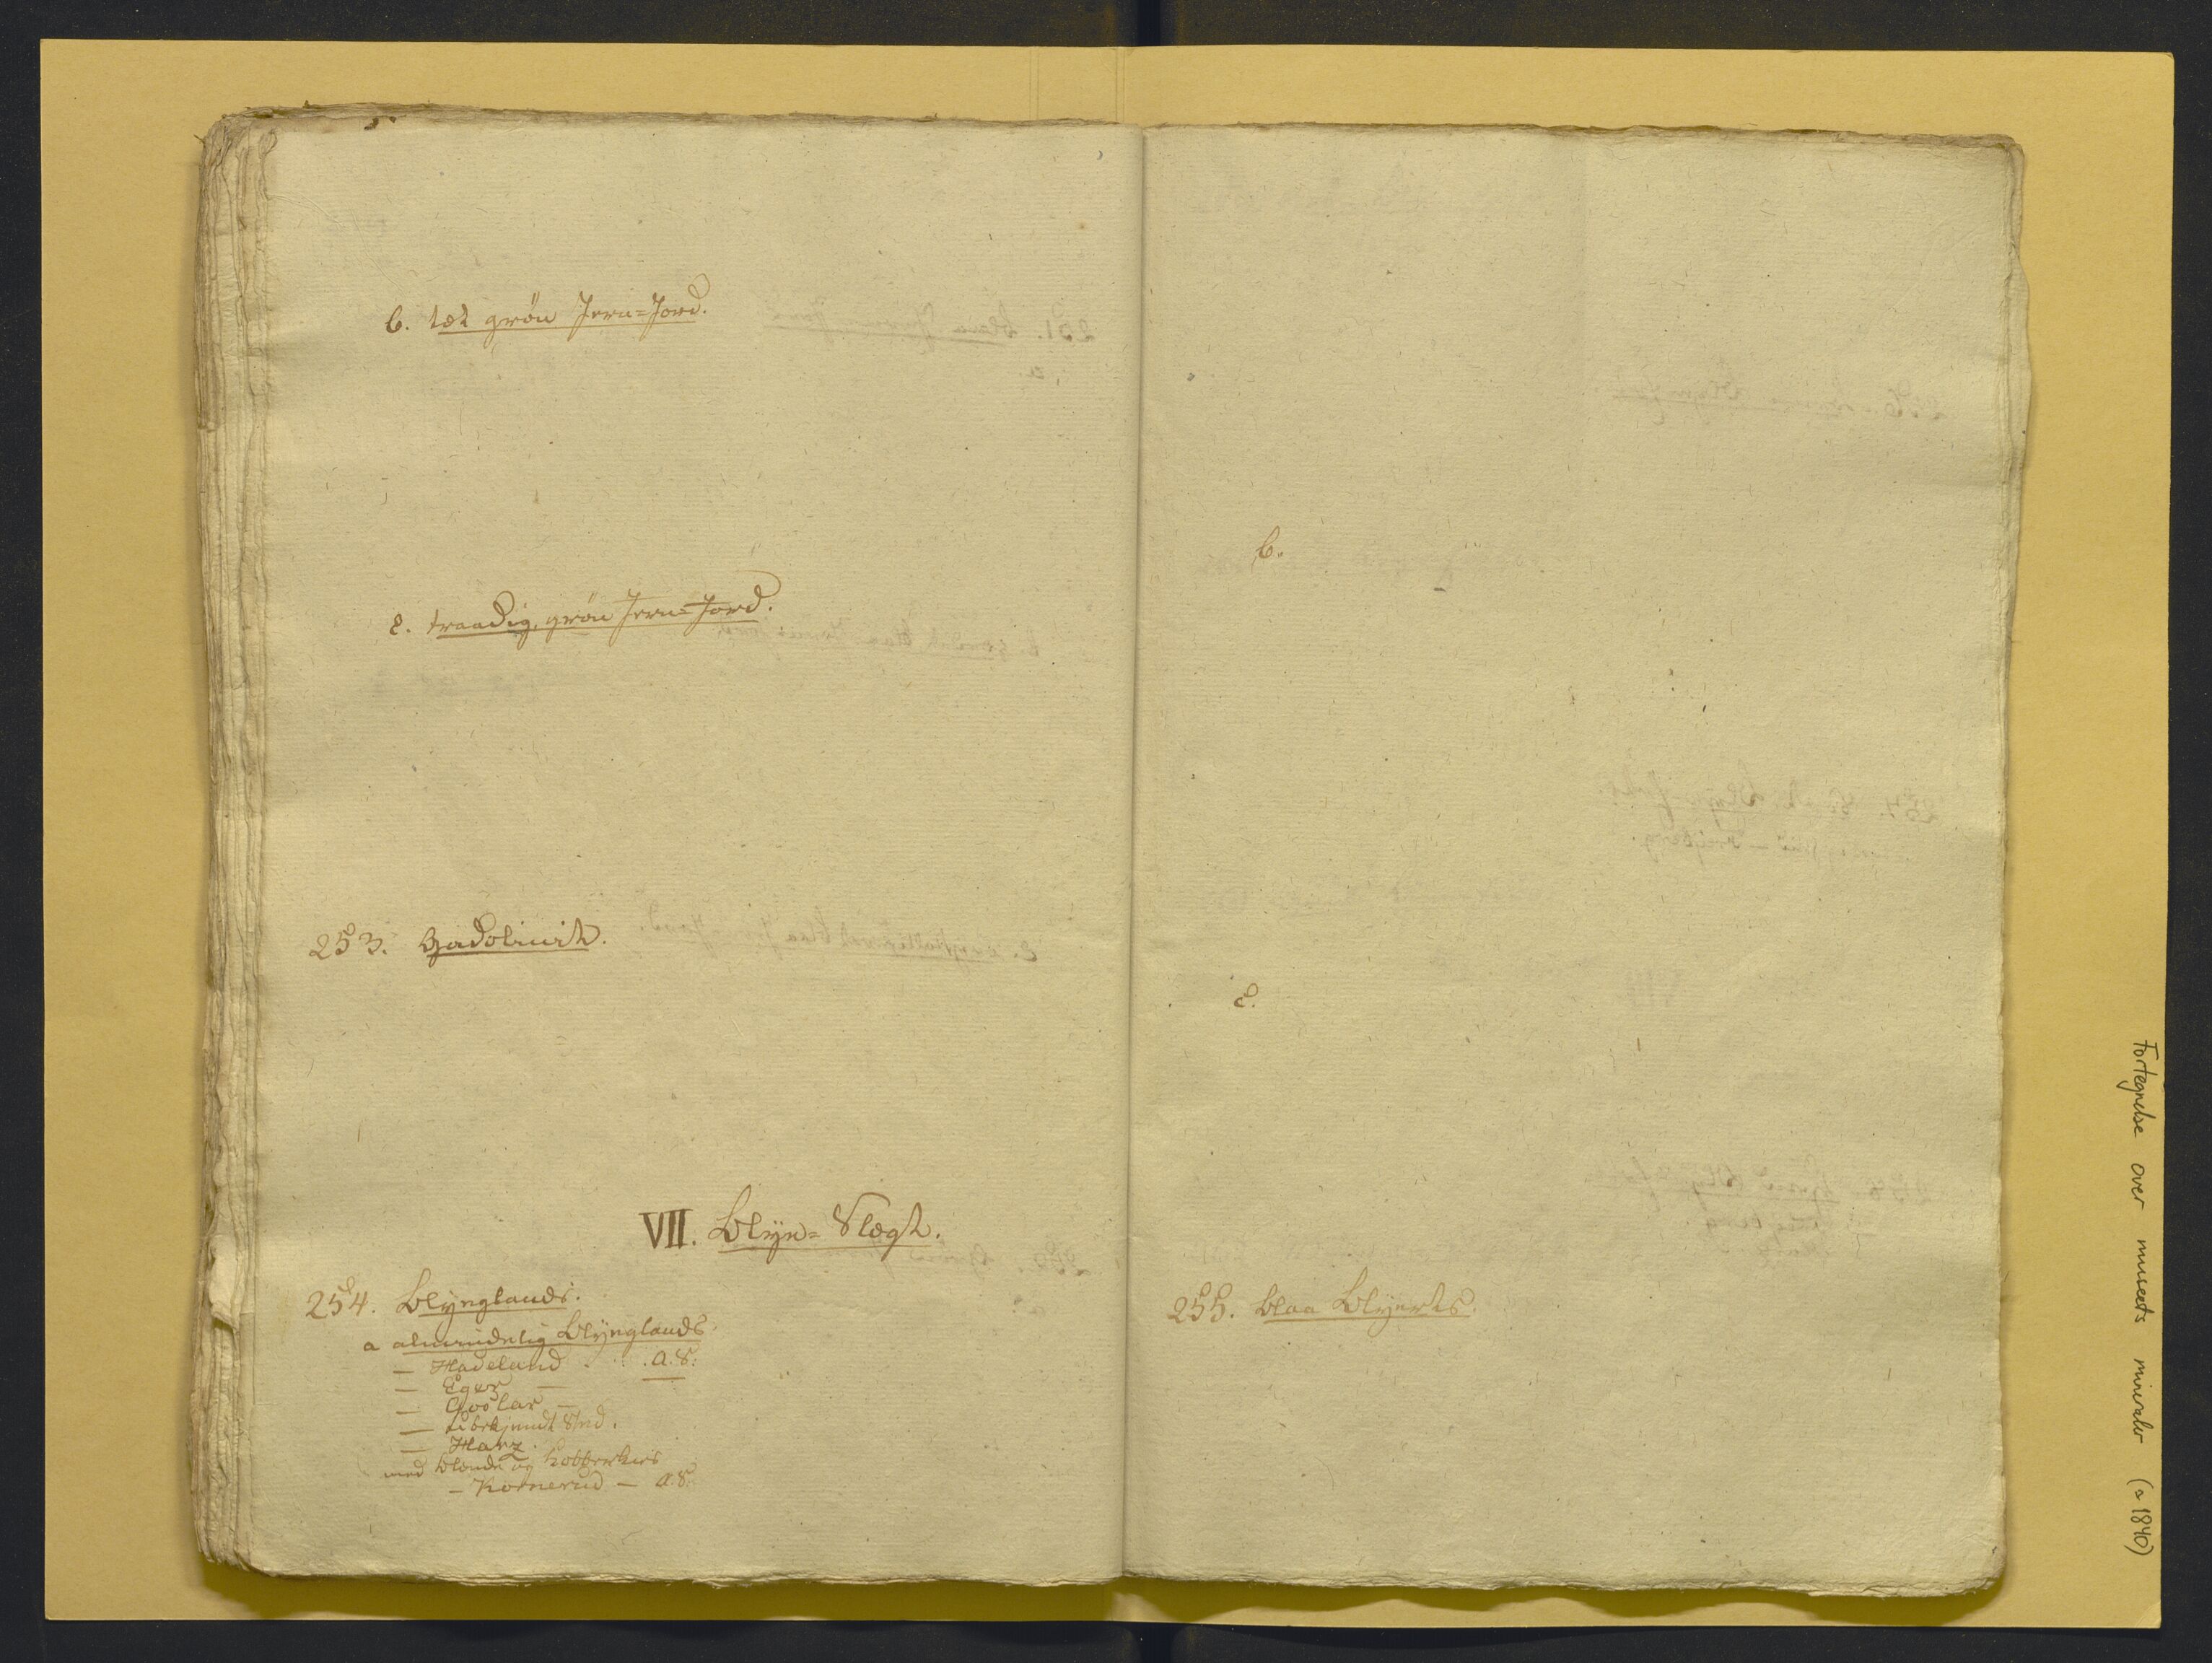 b. tæt grön Jern=Jord.
c. traadig, grön Jern=Jord.
253. Gadolinit.
VII. Blÿe= Slægt.
254. Blÿeglands.
a almindelig Blÿeglands.
— Hadeland . . . . A.S:
— Eger —
— Goslar —
— ubekjendt Sted.
— Harz.
med blende og Kobberkies
— Kornerud — A.S:
b.
c.
255. blaa Blÿerts.
Fortegnelse over museets mineraler (~ 1840)